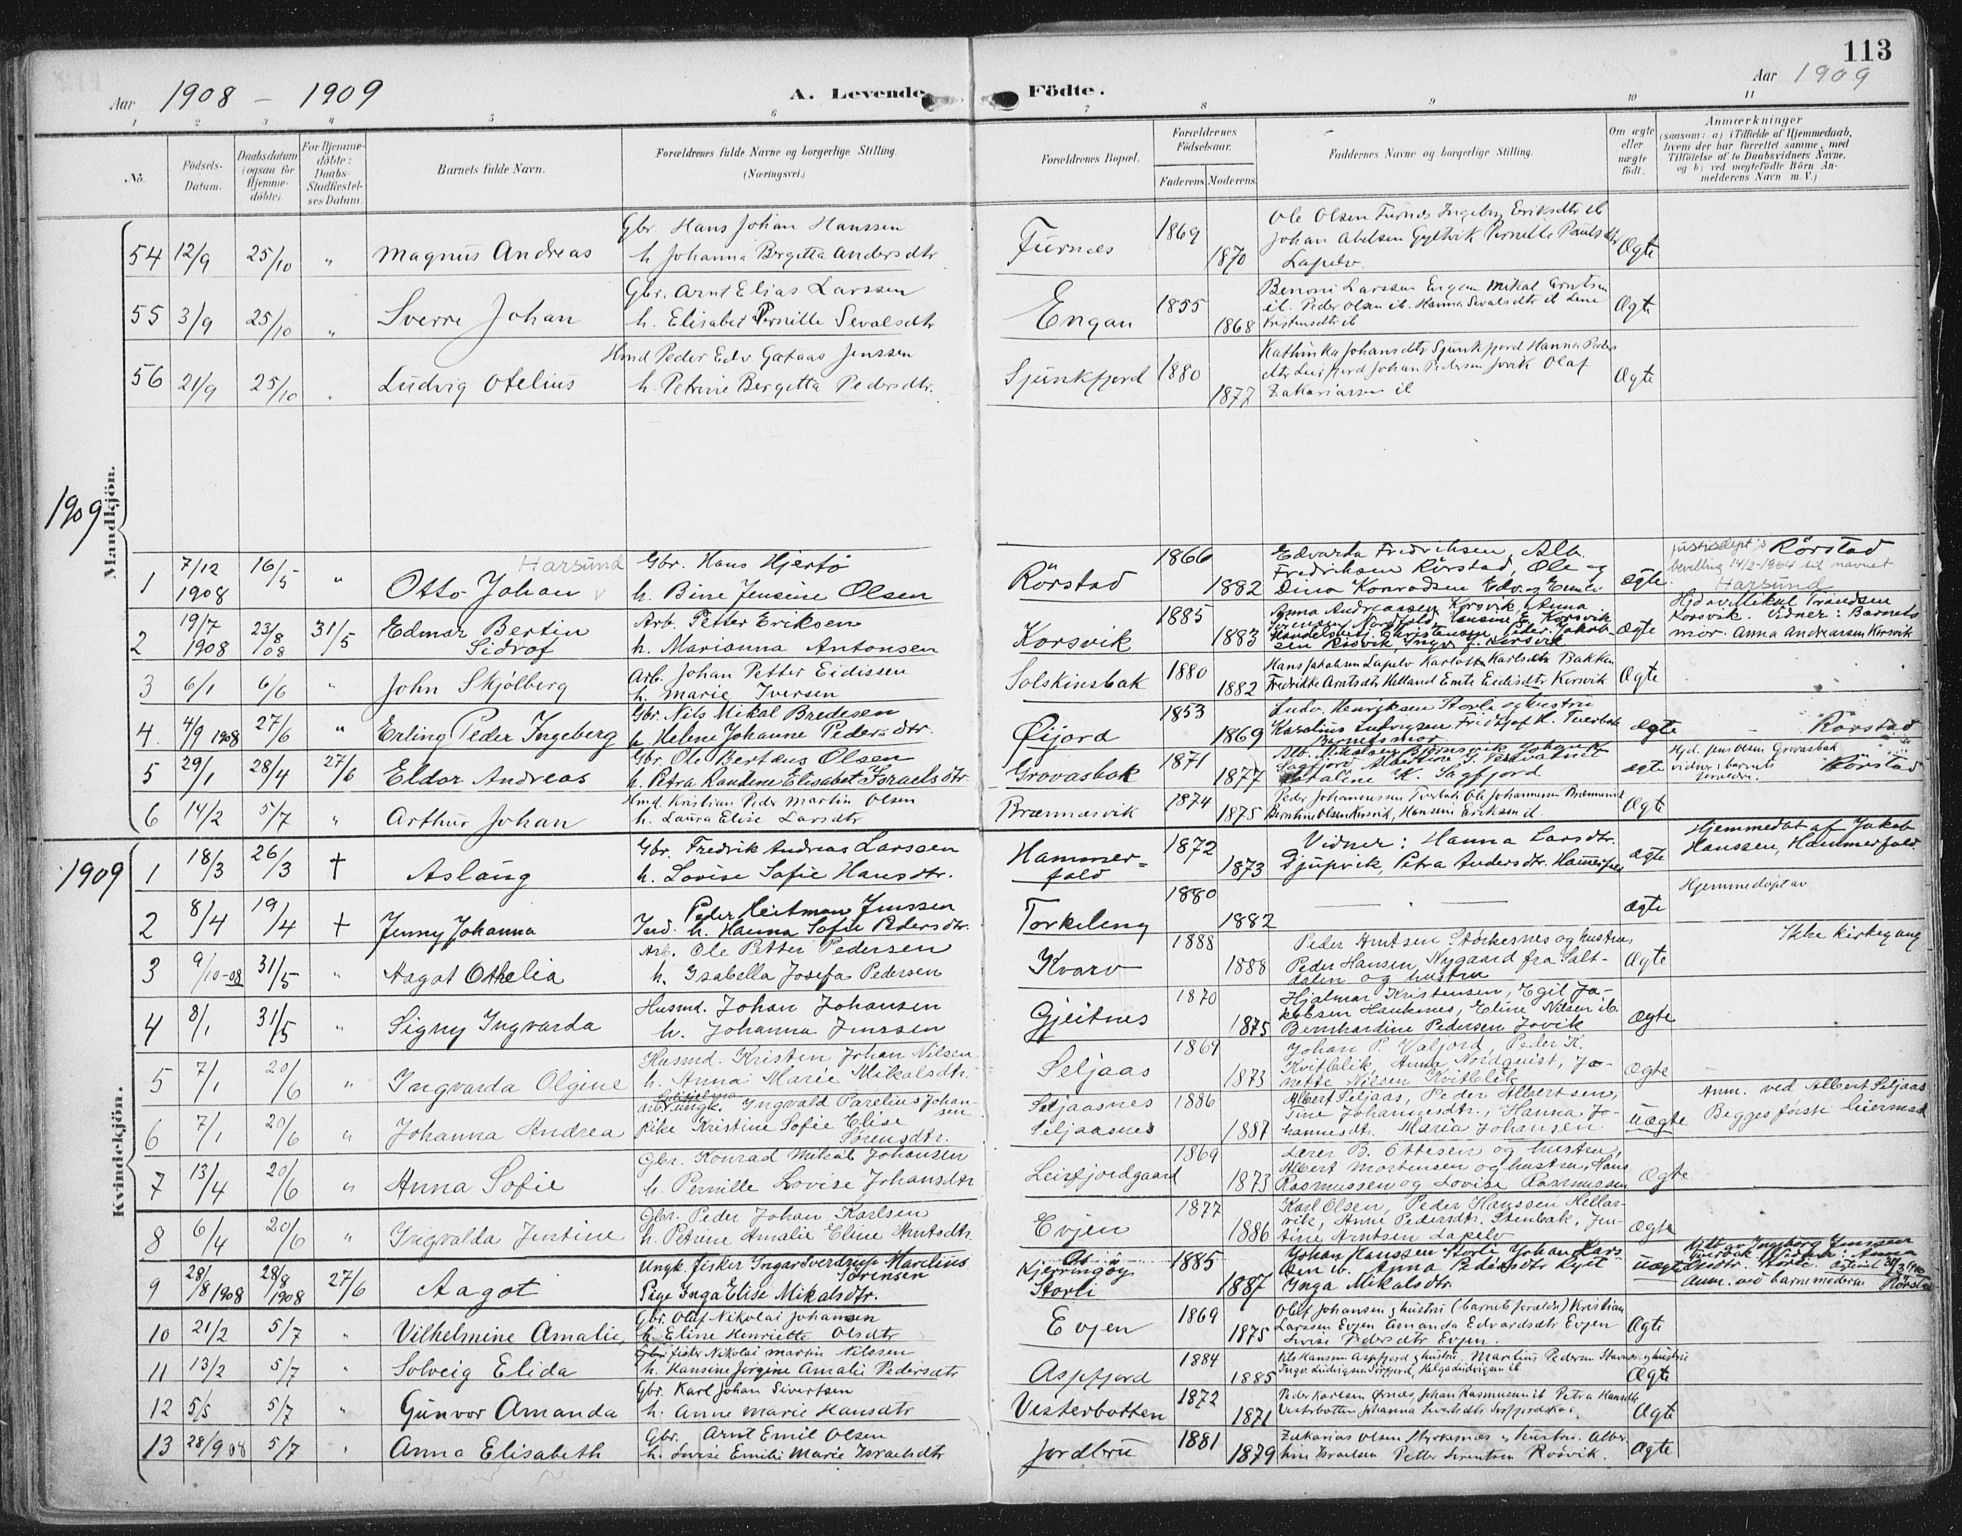 113
Aar 1908 - 1909
A. Levende Födte.
Aar 1909
1 2 3 4 5 6 7 8 9 10 11
No.
Födsels-Datum.
Daabsdatum (ogsaa for Hjemmedöbte).
For Hjemmedöbte: Daabs-Stadfæstelses Datum.
Barnets fulde Navn.
Forældrenes fulde Navne og borgerlige Stilling. (Næringsvei.)
Forældrenes Bopæl.
Forældrenes Födselsaar.
Faderens. Moderens.
Faddernes Navne og borgerlige Stilling.
Om ægte eller uægte födt.
Anmærkninger
(saasom: a) i Tilfælde af Hjemmedaab, hvem der har forrettet samme, med Tilföielse af to Daabsvidners Navne, og b) ved uægtefödte Börn Anmelderens Navn m. V.)
Mandkjön.
54 12/9 25/10 " Magnus Andreas
Gbr. Hans Johan Hanssen
h. Johanna Birgitta Andersdtr
Furnes 1869 1870
Ole Olsen Furnes Ingebg Eriksdtr ib
Johan Abelsen Gyltvik Pernille Paulsdtr
Lapelv.
Ægte
55 3/9 25/10 " Sverre Johan
Gbr. Arnt Elias Larssen
h. Elisabet Pernille Sevalsdtr
Engan 1855 1868
Benoni Larssen Engan Mikal Arntsen
ib. Peder Olsen ib. Hanna Sevalsdtr ib Line
Kristensdtr ib
Ægte
56 21/9 25/10 Ludvig Otelius
Hmd Peder Edv. Gataas Jenssen
h. Petrine Bergitta Pedersdtr.
Sjunkfjord 1880 1877
Kathinka Johansdtr Sjunkfjord Hanna Peders
dtr Leirfjord Johan Pedersen Jovik Olaf
Zakariassen ib
Ægte
1909
1 7/12 1908 16/5 " Otto Johan Harsund
Gbr. Hans Hjertö
h. Bine Jensine Olsen
Rörstad 1866 1882
Edvarda Fredriksen, Alb.
Fredriksen Rörstad, Ole og
Dina Konradsen Edv. og Emilie
ægte
justisdept's Rörstad
bevilling 14/2-1964 til navnet
Harsund
2 19/7 1908 23/8 08 31/5 Edmar Bertin
Sidrof
Arb. Petter Eriksen
h. Marianna Antonsen
Korsvik 1885 1883
Anna Andreassen Korsvik, Anna
Sörensen Nordfold, Hansine E. Korsvik
Handelsbetj. Christensen, Peder Jakob-
sen Rösvik,
ægte
Hjd av Mikal Trondsen
Korsvik. Vidner: Barnets
mor. Anna Andreassen Korsvik
3 6/1 6/6 " John Skjölberg
Arb. Johan Petter Eidissen
h. Marie Iversen
Solskinsbak 1880 1882
Hans Jakobsen Lapelv Karlotte Karlsdtr Bakken
Fredrikke Arntsdtr Helland Emte Eidisdtr Korsvik
Ægte
4. 4/9 1908 27/6 " Erling Peder Ingeberg
Gbr. Nils Mikal Bredesen
h. Helene Johanne Pedersdtr.
Öijord 1853 1869
Ludv. Henriksen Storli og hustru
Karolius Ludvigsen Fridtjof H. Tverbak
Barnets mor
ægte
Rörstad
5 29/1 28/4 27/6 Eldor Andreas
Gbr. Ole Berteus Olsen
h. Petra Randine Elisabet Israelsdtr.
Grovasbak 1871 1877
ægte
Hjd. Jens Olsen Grovasbak
vidner: barnets
forældre.
Rörstad
6 14/2 5/7 " Arthur Johan
Hmd. Kristian Peder Martin Olsen
h. Laura Elise Larsdtr
Brænnesvik 1874 1875
Peder Johannessen Tverbak Ole Johannessen Brænnesvik
Bernhine Olsen Korsvik, Hansine Eriksen ib.
Ægte
Kvindekjön.
1909
1 18/3 26/3 † Aslaug
Gbr. Fredrik Andreas Larssen
h. Lovise Sofie Hansdtr.
Hammer-
fald 1872 1873
Vidner: Hanna Larsdtr.
Djupvik, Petra Andersdtr. Hammerfald
ægte
Hjemmedöbt af Jakob
Hanssen, Hammerfald
2 8/4 19/4 † Jenny Johanna
Peder Heitman Jenssen
Ind. h. Hanna Sofie Pedersdtr.
Torkileng 1880 1882
ægte
Hjemmedöpt av
3 9/10-08 31/5 " Aagot Othelia
Arb. Ole Petter Pedersen
h. Isabella Josefa Pedersen
Kvarv 1888 1888
Peder Arntsen Störkesnes og hustru,
Peder Hansen Nygaard fra Salt-
dalen og hustru
Ægte
Ikke kirkegang
4 8/1 31/5 " Signy Ingvarda
Husmd. Johan Johansen
h. Johanna Jenssen
Gjeitnes 1870 1875
Hjalmar Kristensen, Egil Ja-
kobsen Haukenes, Eline Nilsen ib.
Bernhardine Pedersen Jovik
ægte
5 7/1 20/6 " Ingvarda Olgine
Husmd. Kristen Johan Nilsen
h. Anna Marie Mikalsdtr.
Seljaas 1869 1873
Johan P. Valjord, Peder K.
Kvitblik, Anna Nordquist, Ja-
nette Nilsen Kvitblik
ægte
6 7/1 20/6 " Johanna Andrea
Arb. Ungk. Ingvald Parelius Johan-
sen
Pike Kristine Sofie Elise
Sörensdtr.
Seljaasnes
Seljaasnes 1886 1887
Albert Seljaas, Peder Albertsen,
Tine Johannesdtr., Hanna Jo-
hannesdt. Maria Johansen
uægte
Anm. ved Albert Seljaas
Begges förste leiermaal
7 13/4 20/6 " Anna Sofie
Gbr. Konrad Mikal Johansen
h. Pernille Lovise Johansdtr
Leirfjordgaard 1869 1873
Lærer B. Ottesen og hustru,
Albert Mortensen og hustru, Hans
Rasmussen og Lovise Rasmussen
Ægte
8 6/4 20/6 " Ingvalda Justine
Gbr. Peder Johan Karlsen
h. Petrine Amalie Eline Arntsdtr.
Evjen 1877 1886
Karl Olsen, Peder Hanssen Hellar-
vik, Anne Pedersdtr. Stenbak, Jen-
sine Arntsen Lapelv
ægte
9 28/8 1908 28/8 1908 27/6 Aagot
Ungk. fisker Ingar Sverdrup Marelius
Sörensen
Pige Inga Elise Mikalsdtr.
Kjerringöy
Storli 1885 1887
Johan Hanssen Storli Johan Lars-
sen ib. Anna Pedersdtr Gylt
Inga Mikalsdtr
uægte
Anm. ved barnemoderen Rörstad
10 21/2 5/7 " Vilhelmine Amalie
Gbr. Oluf Nikolai Johansen
h. Eline Henriette Olsdtr
Evjen 1869 1875
Oluf Johansen & hustru (barnets forældre) Kristian
Larssen Evjen Amanda Edvardsdtr Evjen
Lovise Pedersdtr Evjen.
Ægte
11 13/2 5/7 " Solveig Elida
Fisker Nikolai Martin Nilssen
h. Hansine Jörgine Amalie Pedersdtr
Aspfjord 1884 1885
Nils Hanssen Aspfjord & hustru. Marelius Pedersen Stavnes & hustru
Inger Ludvigsen Sörfjord, Helga Ludvigsen ib
Ægte
12 5/5 5/7 " Gunvor Amanda
Gbr. Karl Johan Sivertsen
h. Anne Marie Hansdtr
Vesterbotten 1872 1871
Peder Karlsen Örnes, Johan Rasmussen ib Petra Hansdtr
Vesterbotten Johanna Sivertsdtr
Ægte
13 28/9 08 5/7 " Anna Elisabeth
Gbr. Arnt Emil Olsen
h. Lovise Emilie Marie Israelsdtr
Jordbru 1881 1879
Zakarias Olsen Styrkesnes & hustru. Alber-
tine Israelsen Petter Sörentsen Rösvik.
Ægte